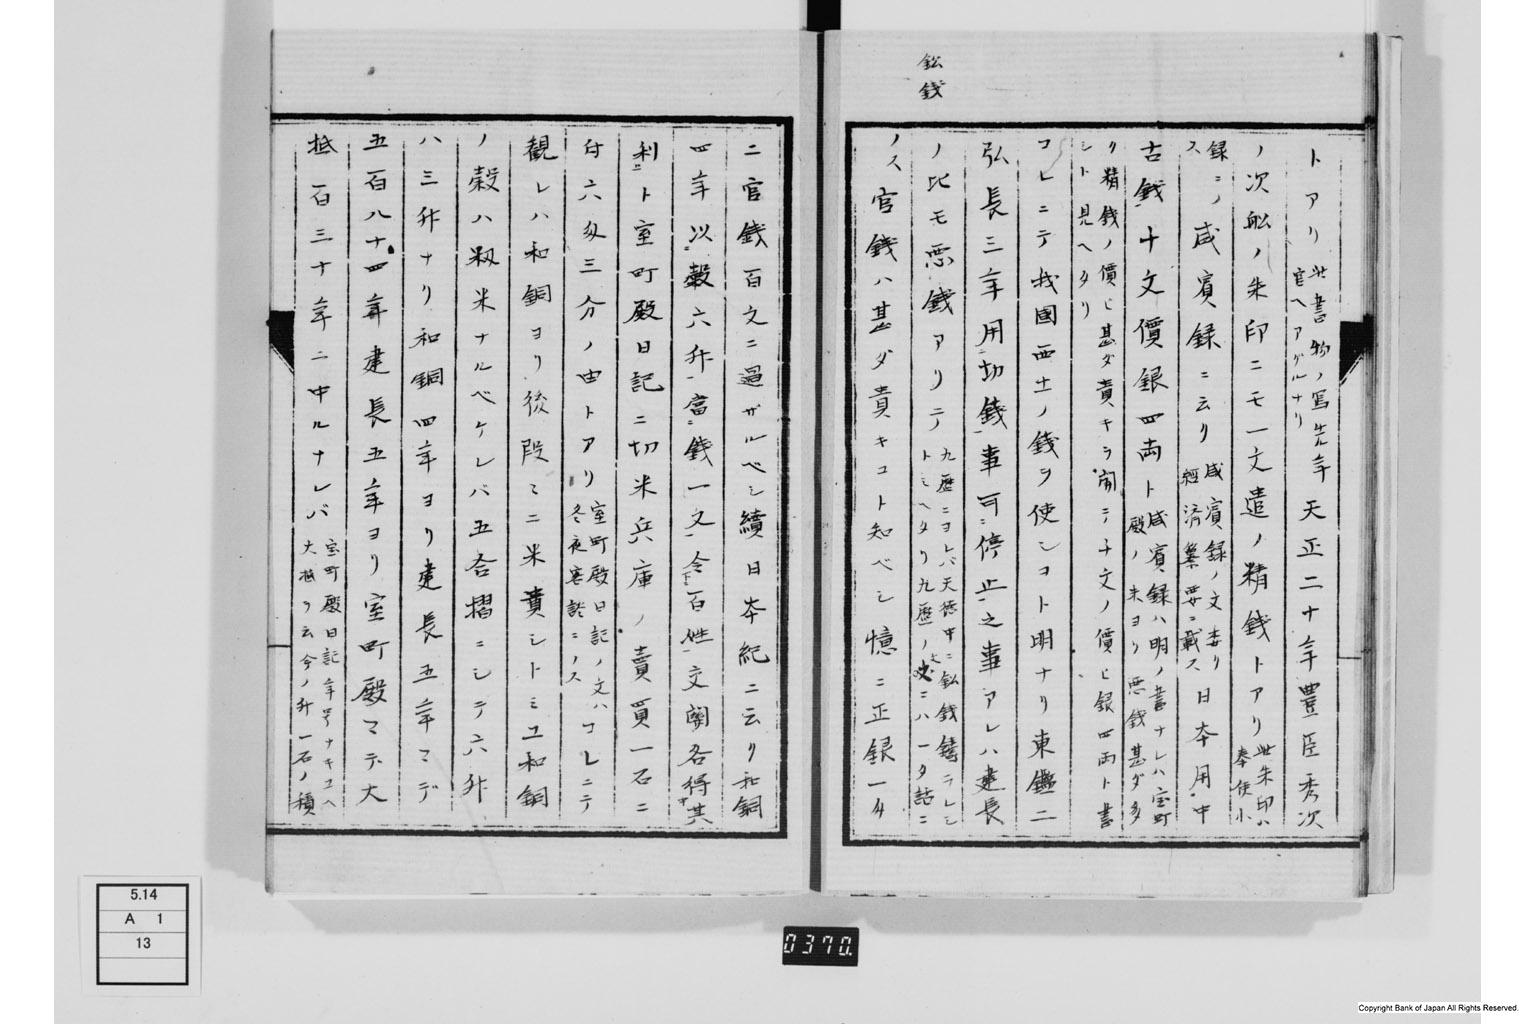 鈆
錢
トアリ
此書物ノ寫先年
官ヘアグルナリ
天正二十年豊臣秀次
ノ次舩ノ朱印ニモ一文遣ノ精錢トアリ
此朱印ハ
奉使小
録ニノ
ス
咸賓録ニ云リ
咸賓録ノ文委リ
經済纂要ニ載ス
日本用中
古錢十文價銀四両ト
咸賓録ハ明ノ書ナレハ室町
殿ノ末ヨリ悪錢甚ダ多
リ精錢ノ價ヒ甚ダ貴キヲ聞テ千文ノ價ヒ銀四両ト書
シト見ヘタリ
コレニテ我國西土ノ錢ヲ使シコト明ナリ東鑑ニ
弘長三年用切錢事可停止之事アレハ建長
ノ比モ悪錢アリテ
九歴ニヨレバ天徳中ニ鈆錢鑄ラレシ
トミヘタリ九歴ノ文ニハ一夕話ニ
ノス
官錢ハ甚ダ貴キコト知ベシ憶ニ正銀一匁
ニ官錢百文ニ過ザルベシ續日本紀ニ云リ和銅
四年以穀六升當錢一文令百姓交関各得其
利ト室町殿日記ニ切米兵庫ノ賣買一石ニ
付六匁三分ノ由トアリ
室町殿日記ノ文ハ
冬夜客談ニノス
コレニテ
観レハ和銅ヨリ後段々ニ米貴シトミユ和銅
ノ穀ハ籾米ナルベケレバ五合摺ニシテ六升
ハ三升ナリ和銅四年ヨリ建長五年マデ
五百八十四年建長五年ヨリ室町殿マデ大
抵百三十年ニ中ルナレバ
室町殿日記年号ナキユヘ
大抵ヲ云今ノ升一石ノ積
5.14
A 1
13
0370.
Copyright Bank of Japan All Rights Reserved.